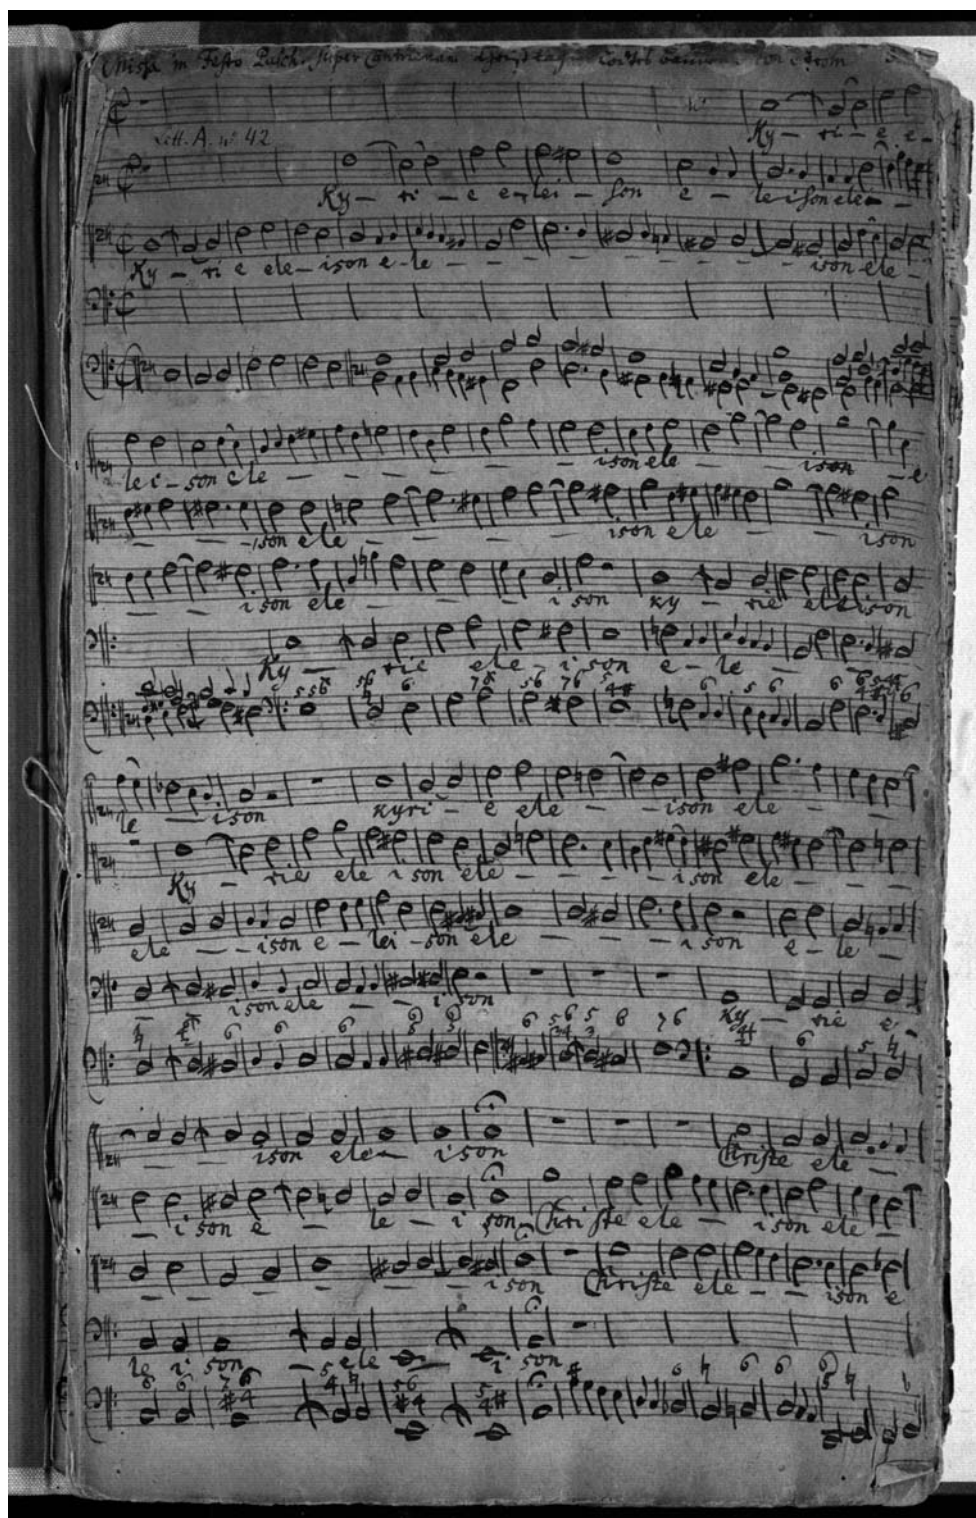 Missa in Festo Pasch. super Cantilenam Christ lag in Todes banden
Litt. A. no 42
Ky – ri – e e –
Ky – ri – e e – lei – son e – leison elei –
Ky – ri e ele – ison e – le – – – – – – ison ele –
lei – son ele – – – – – – ison ele – – ison – e
– – – ison ele – – – – – ison ele – – – ison
– – ison ele – – – – ison Ky – rie eleison
Ky – rie ele – ison e – le – –
5 5 6 5 6 6 7 6 5 6 7 6 5 4 # 6 5 6 6
le – ison kyri – e ele – – ison ele – –
Ky – rie ele ison ele – – – – – ison ele – – – –
ele – – ison e – lei – son ele – – – – ison e – le –
– ison ele – – – ison Ky – rie e –
6 6 6 6 5 6 5 6 7 6 6 5
– – ison ele – ison Christe ele –
– ison e – le – i son Christe ele – ison ele –
– – – – – – ison Christe ele – – ison e
le i son – ele – i son
6 6 7 6 5 4 5 6 5 4 # 6 6 6 6